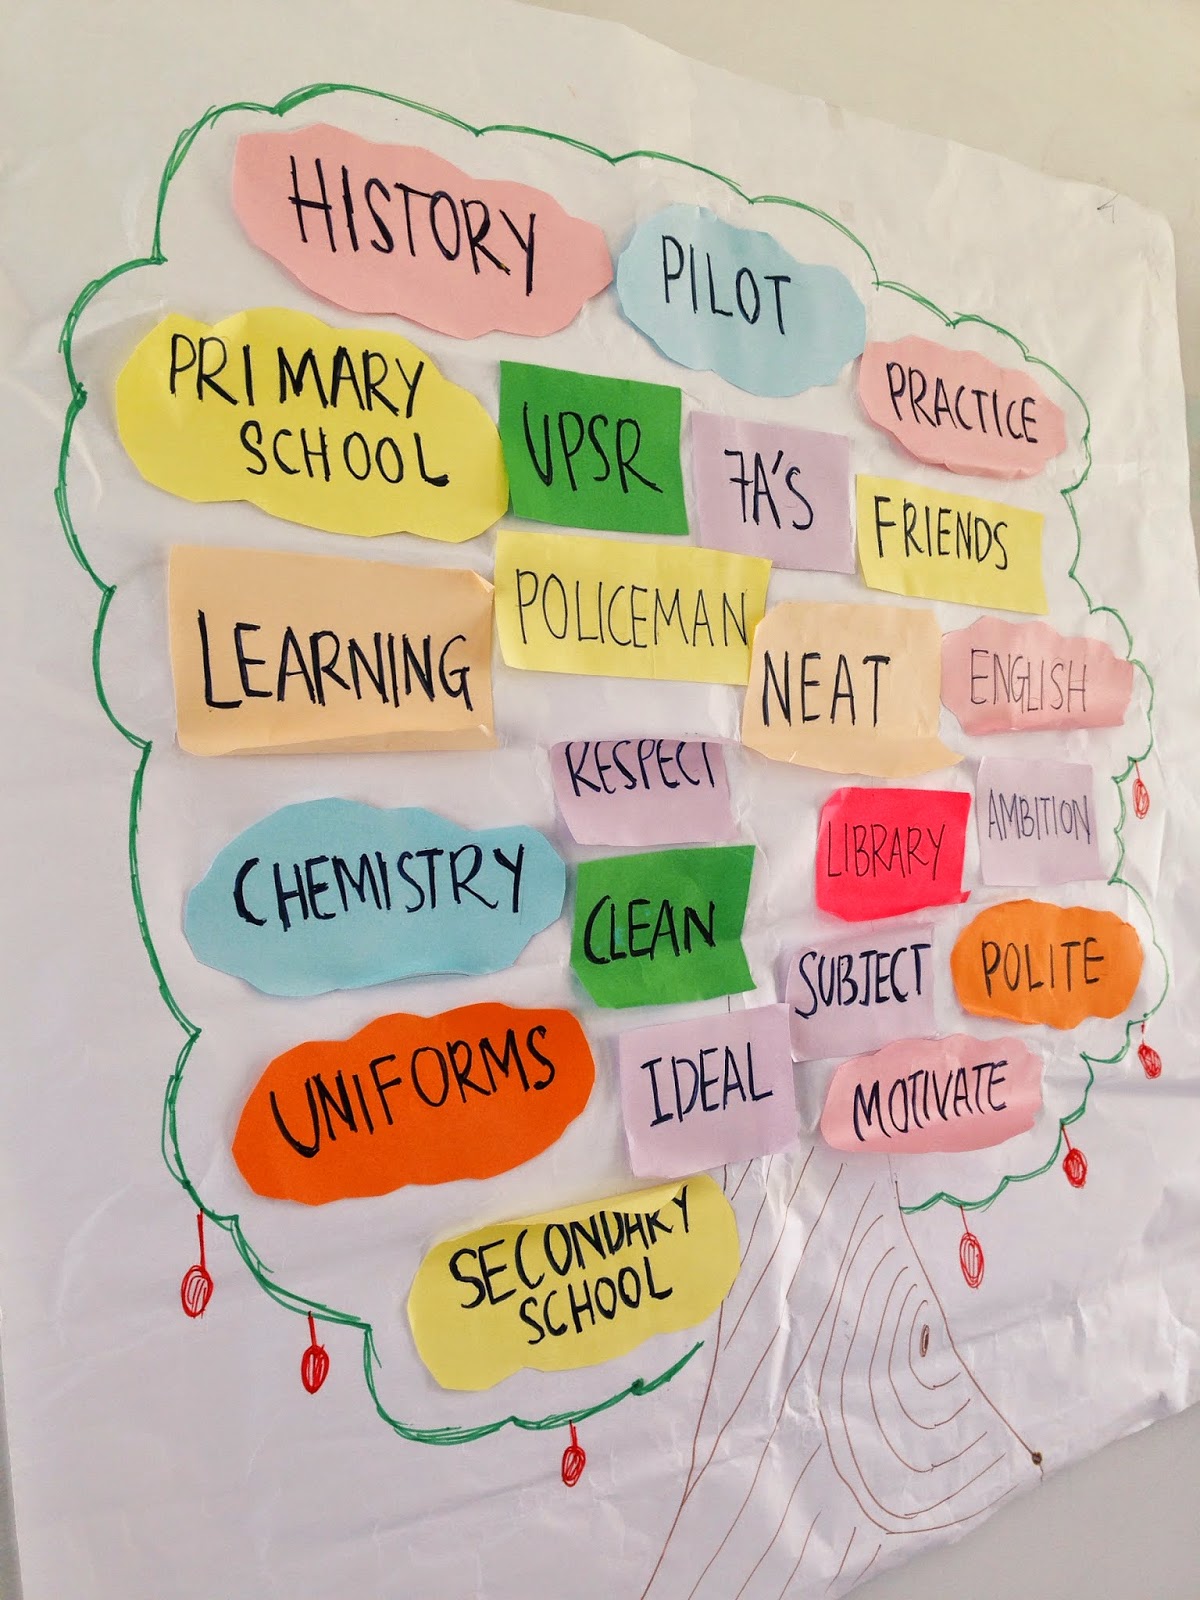 HISTORY
PILOT
PRACTICE
PRIMARY
SCHOOL
UPSR
7A'S
FRIENDS
LEARNING
POLICEMAN
NEAT
ENGLISH
RESPECT
LIBRARY
AMBITION
CHEMISTRY
CLEAN
SUBJECT
POLITE
UNIFORMS
IDEAL
MOTIVATE
SECONDARY
SCHOOL